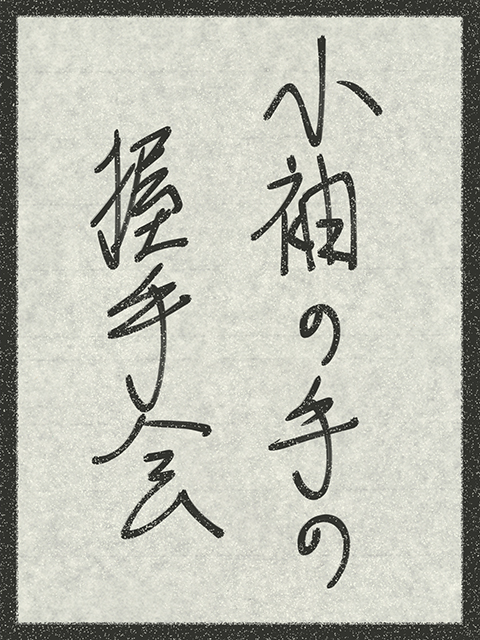 小袖の手の
握手会